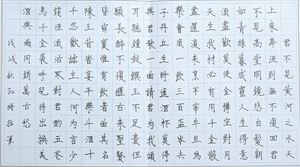 君不見黃河之水天
上來奔流到海不復回君
不見高堂明鏡悲白髮朝
如青絲暮成雪人生得意
須盡歡莫使金樽空對月
天生我材必有用千金散
盡還復來烹羊宰牛且為
樂會須一飲三百杯岑夫
子丹丘生將進酒杯莫停
與君歌一曲請君為我傾
耳聽鐘鼓饌玉不足貴但
願長醉不復醒古來聖賢
皆寂寞惟有飲者留其名
陳王昔時宴平樂斗酒十
千恣歡謔主人何為言少
錢徑須沽取對君酌五花
馬千金裘呼兒將出換美
酒與爾同銷萬古愁
戊戌秋